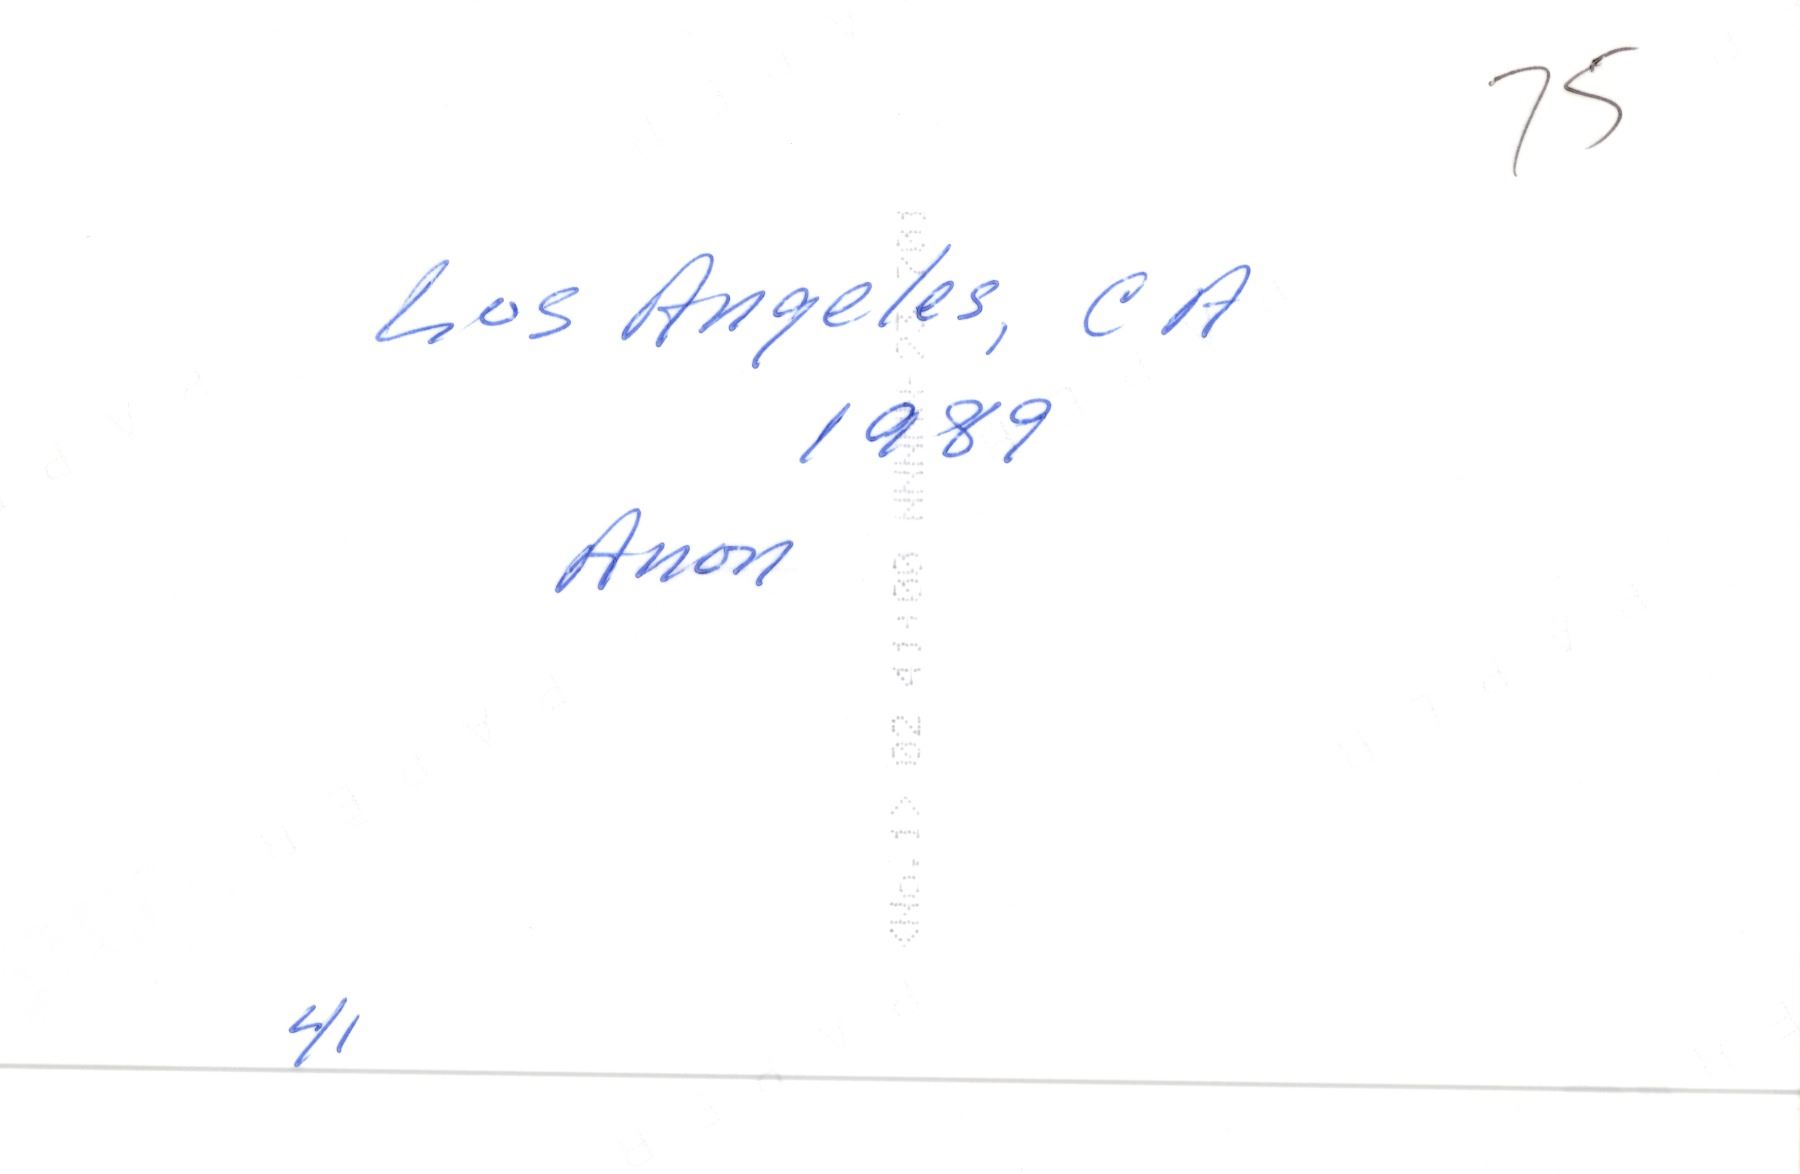 75
Los Angeles, CA
1989
Anon
41